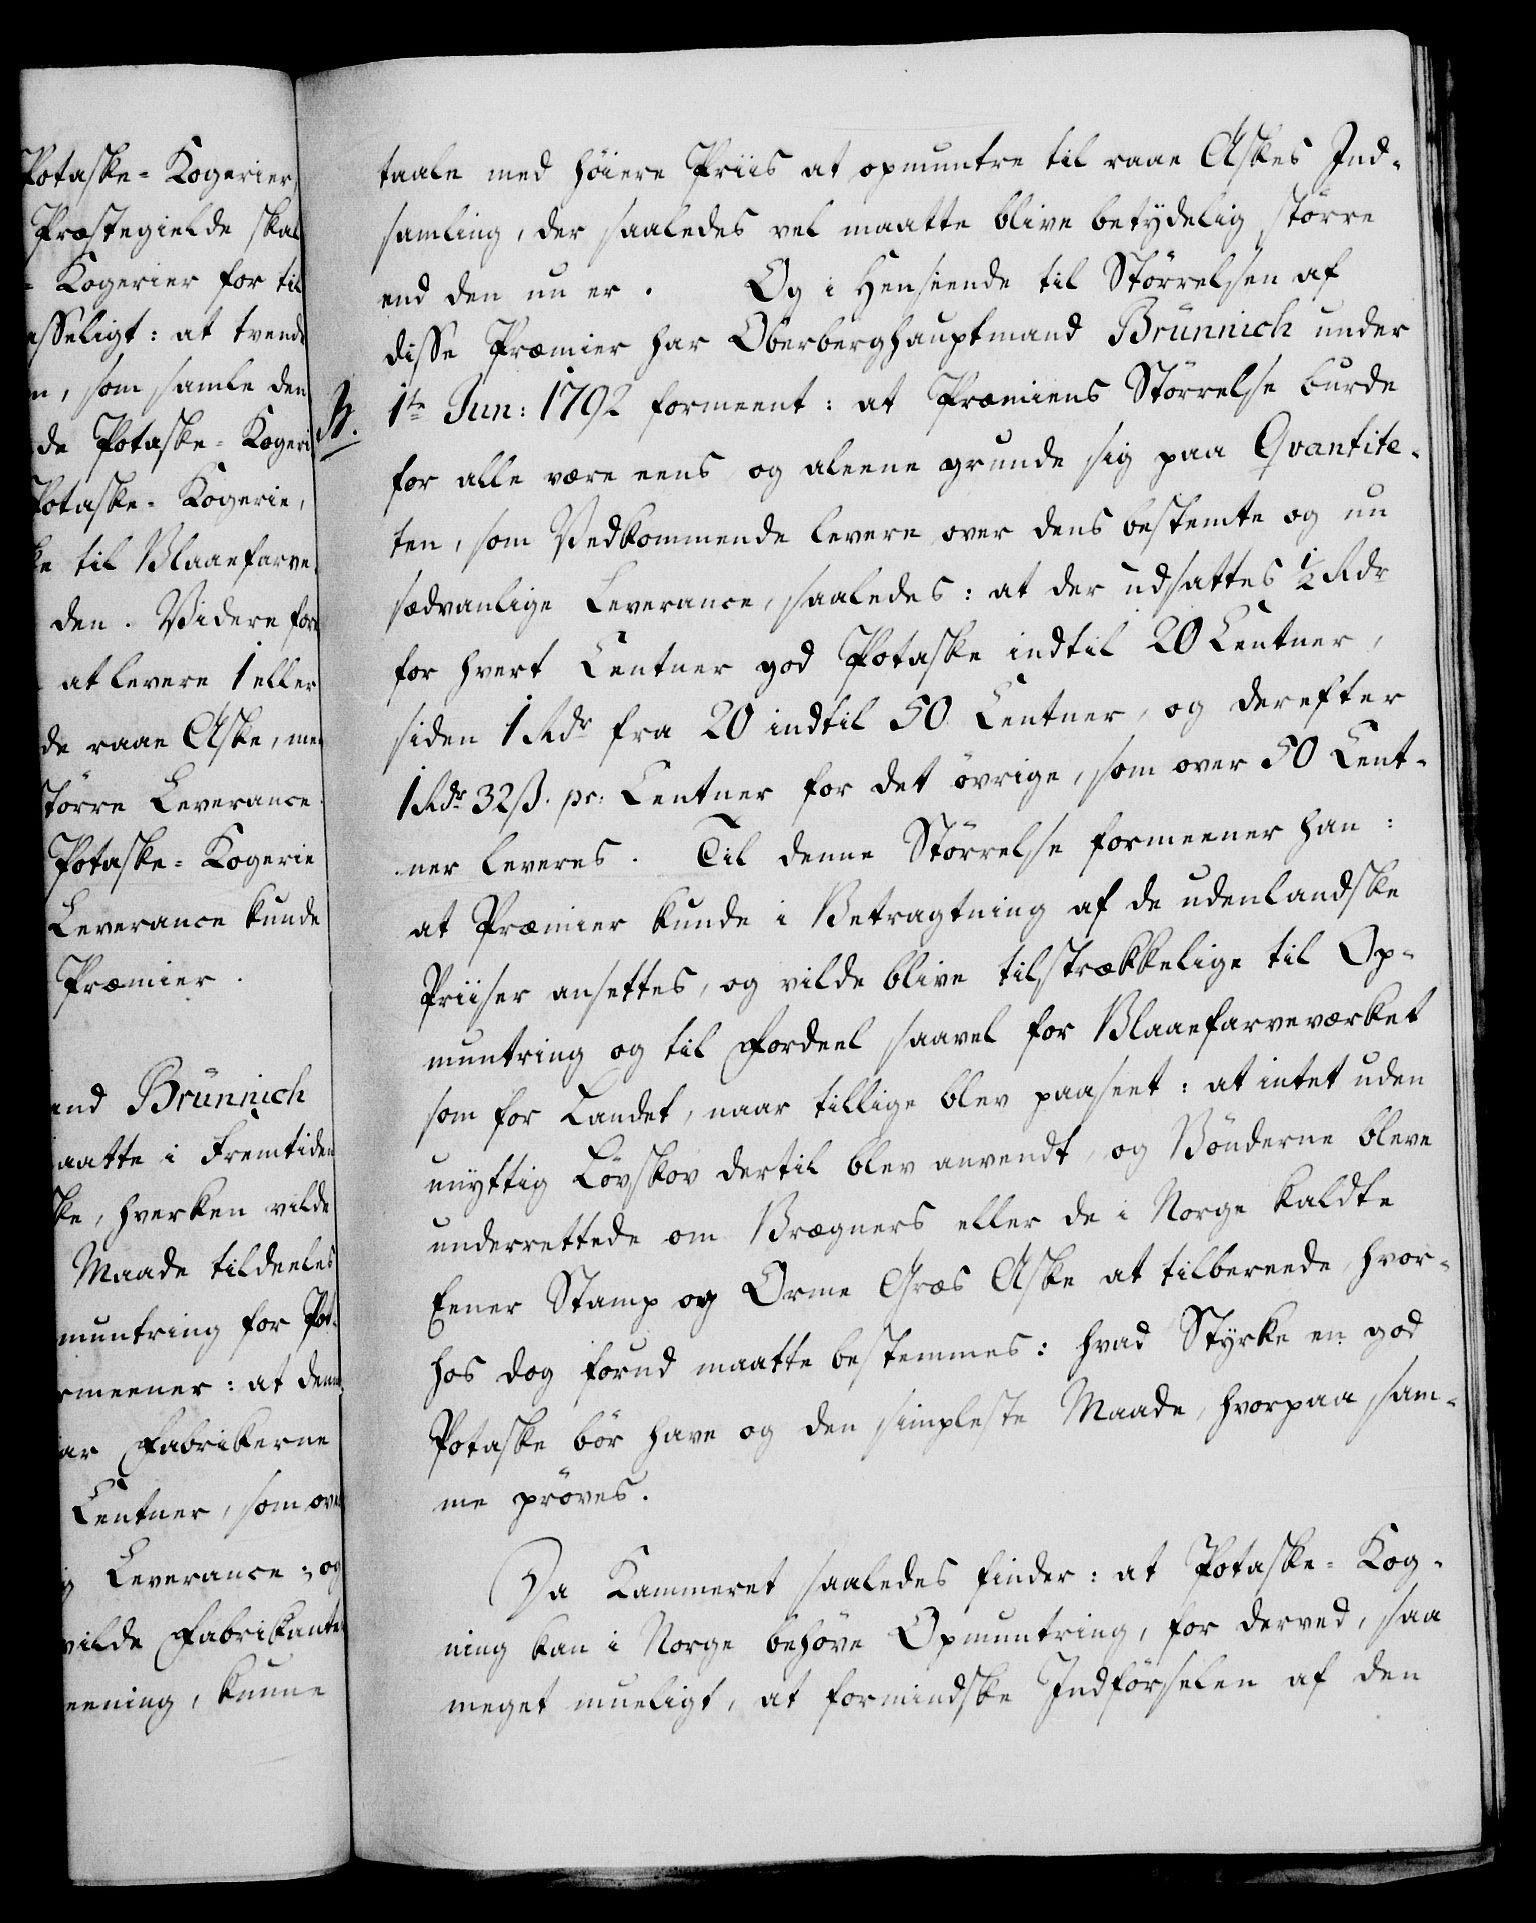 Potaske-Kogerier,
Præstegielde skal
- Kogerier for til
esseligt: at tvende
n, som samle den
de Potaske-Kogeri
Potaske-Kogerie,
ke til Blaaefarve-
den. Videre for
at levere 1 eller
de raae Aske, men
større Leverance
Potaske-Kogerie
Leverance kunde
Præmier.
and Brünnich
aatte i Fremtiden
ke, hverken vilde
Maade tildeeles
muntring for Pot-
rmeener: at denne
ar Fabrikerne
Centner, som over
g Leverance; og
vilde Fabrikante
eening, kunne
taale med høiere Priis at opmuntre til raae Askes Ind-
samling, der saaledes vel maatte blive betydelig større
end den nu er. Og i Henseende til Størrelsen af
disse Præmier har Oberberghauptmand Brünnich under
B. 1te Jun: 1792 formeent: at Præmiens Størrelse burde
for alle være eens og aleene grunde sig paa Qvantite-
ten, som Vedkommende levere over dens bestemte og nu
sædvanlige Leverance, saaledes: at der udsattes 1/2 Rdr
for hvert Centner god Potaske indtil 20 Centner,
siden 1 Rdr fra 20 indtil 50 Centner, og derefter
1 Rdr 32 ß. pr: Centner for det øvrige, som over 50 Cent-
ner leveres. Til denne Størrelse formeener han:
at Præmier kunde i Betragtning af de udenlandske
Priiser ansettes, og vilde blive tilstrækkelige til Op-
muntring og til Fordeel saavel for Blaaefarveværket
som for Landet, naar tillige blev paaseet: at intet uden
unyttig Løvskov dertil blev anvendt, og Bønderne bleve
underrettede om Brægners eller de i Norge kaldte
Eener Stamp og Orme Græs Aske at tilbereede, hvor-
hos dog forud maatte bestemmes: hvad Styrke en god
Potaske bør have og den simpleste Maade, hvorpaa sam-
me prøves.
Da Kammeret saaledes finder: at Potaske-Kog-
ning kan i Norge behøve Opmuntring, for derved, saa
meget mueligt, at formindske Indførselen af den